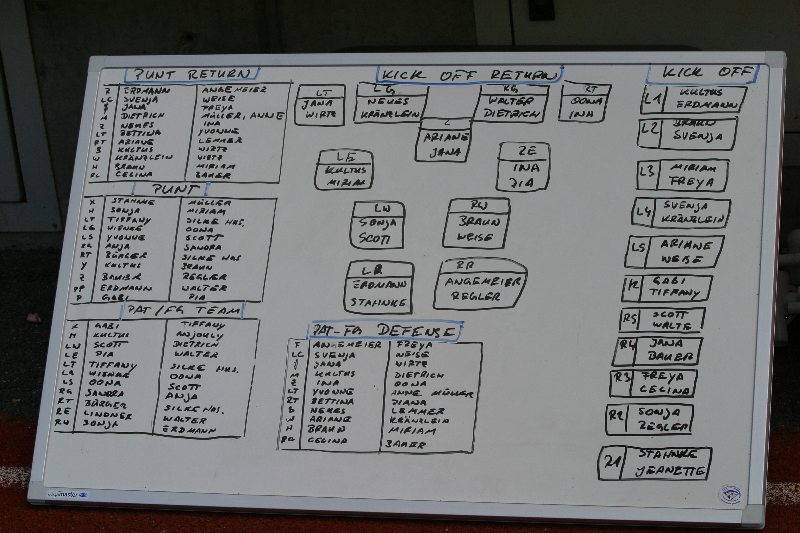 PUNT RETURN
R ERDMANN ANGEMEIER
LC SVENJA WEISE
JANA FREYA
M DIETRICH MÜLLER, ANNE
Z NEHES INA
LT BETTINA YVONNE
RT ARIANE LEMMER
B KULTUS WIRTZ
W KRÄNZLEIN
H BRAUN MIRIAM
RC CELINA BAKER
PUNT
X STAHNKE MÜLLER
H SONJA MIRIAM
LT TIFFANY SILKE HUS.
LG WIENKE OONA
LS YVONNE SCOTT
RG ANJA SANDRA
RT BÜRGER SILKE HUS
Y KULTUS BRAUN
Z BAUER REGLER
PP ERDMANN WALTER
P GABI PIA
PAT/FG TEAM
K GABI TIFFANY
H KULTUS ANJOULY
LW SCOTT DIETRICH
LE PIA WALTER
LT TIFFANY SILKE HUS.
LG WIENKE OONA
LS OONA SCOTT
RG SANDRA ANJA
RT BÜRGER SILKE HUS.
RE LINDNER WALTER
RW SONJA ERDMANN
KICK OFF RETURN
LT JANA WIRTZ
LG NEHES KRÄNZLEIN
C ARIANE JANA
RG WALTER DIETRICH
RT OONA INA
LE KULTUS MIRIAM
RE INA PIA
LW SONJA SCOTT
RW BRAUN WEISE
LR ERDMANN STAHNKE
RR ANGEMEIER REGLER
PAT-FG DEFENSE
F ANGEMEIER FREYA
LC SVENJA WEISE
JANA WIRTZ
M KULTUS DIETRICH
Z INA OONA
LT YVONNE ANNE MÜLLER
RT BETTINA DIANA
B NEHES LEMMER
W ARIANE KRÄNZLEIN
H BRAUN MIRIAM
RC CELINA BAKER
KICK OFF
L1 KULTUS ERDMANN
L2 BRAUN SVENJA
L3 MIRIAM FREYA
L4 SVENJA KRÄNZLEIN
L5 ARIANE WEISE
K GABI TIFFANY
R5 SCOTT WALTE
R4 JANA BAUER
R3 FREYA CELINA
R2 SONJA REGLER
R1 STAHNKE JEANETTE